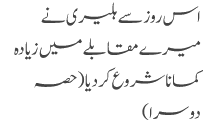 اس روز سے ہلیری نے
میرے مقابلے میں زیادہ
کمانا شروع کر دیا (حصہ
دوسرا)